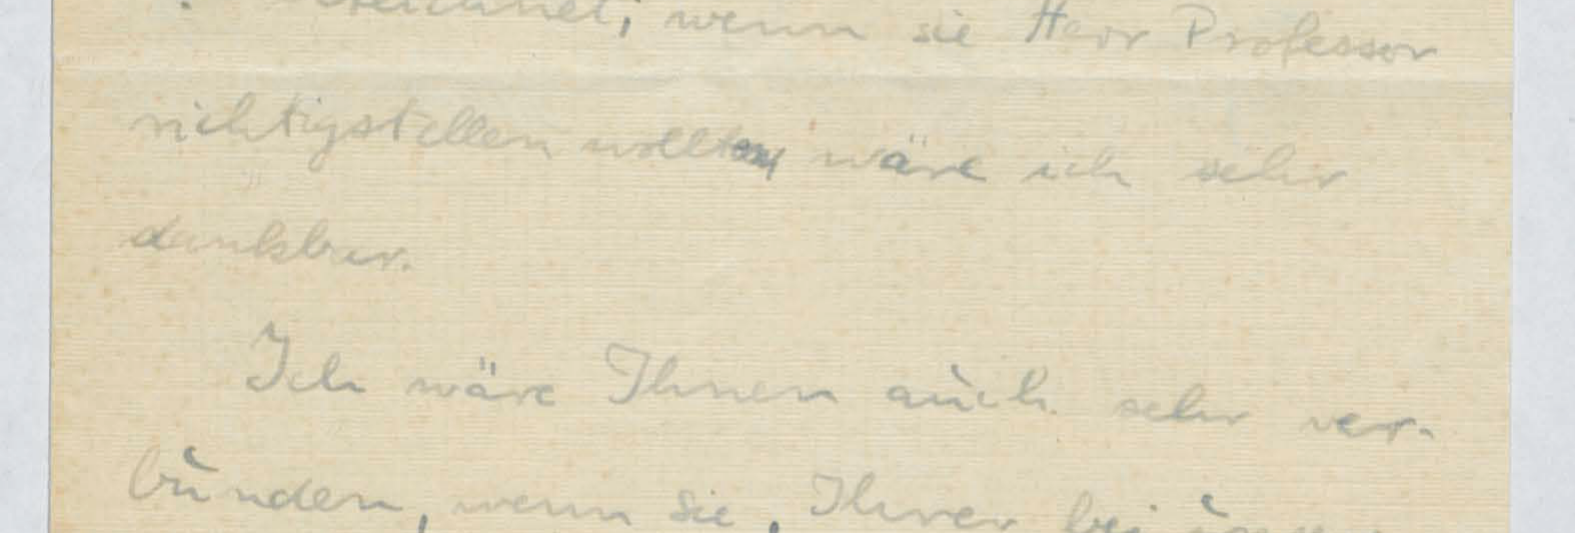 wenn sie Herr Professor
richtigstellen wollten wäre ich sehr
dankbar.
Ich wäre Ihnen auch sehr ver-
bunden, wenn sie, Ihrer bei